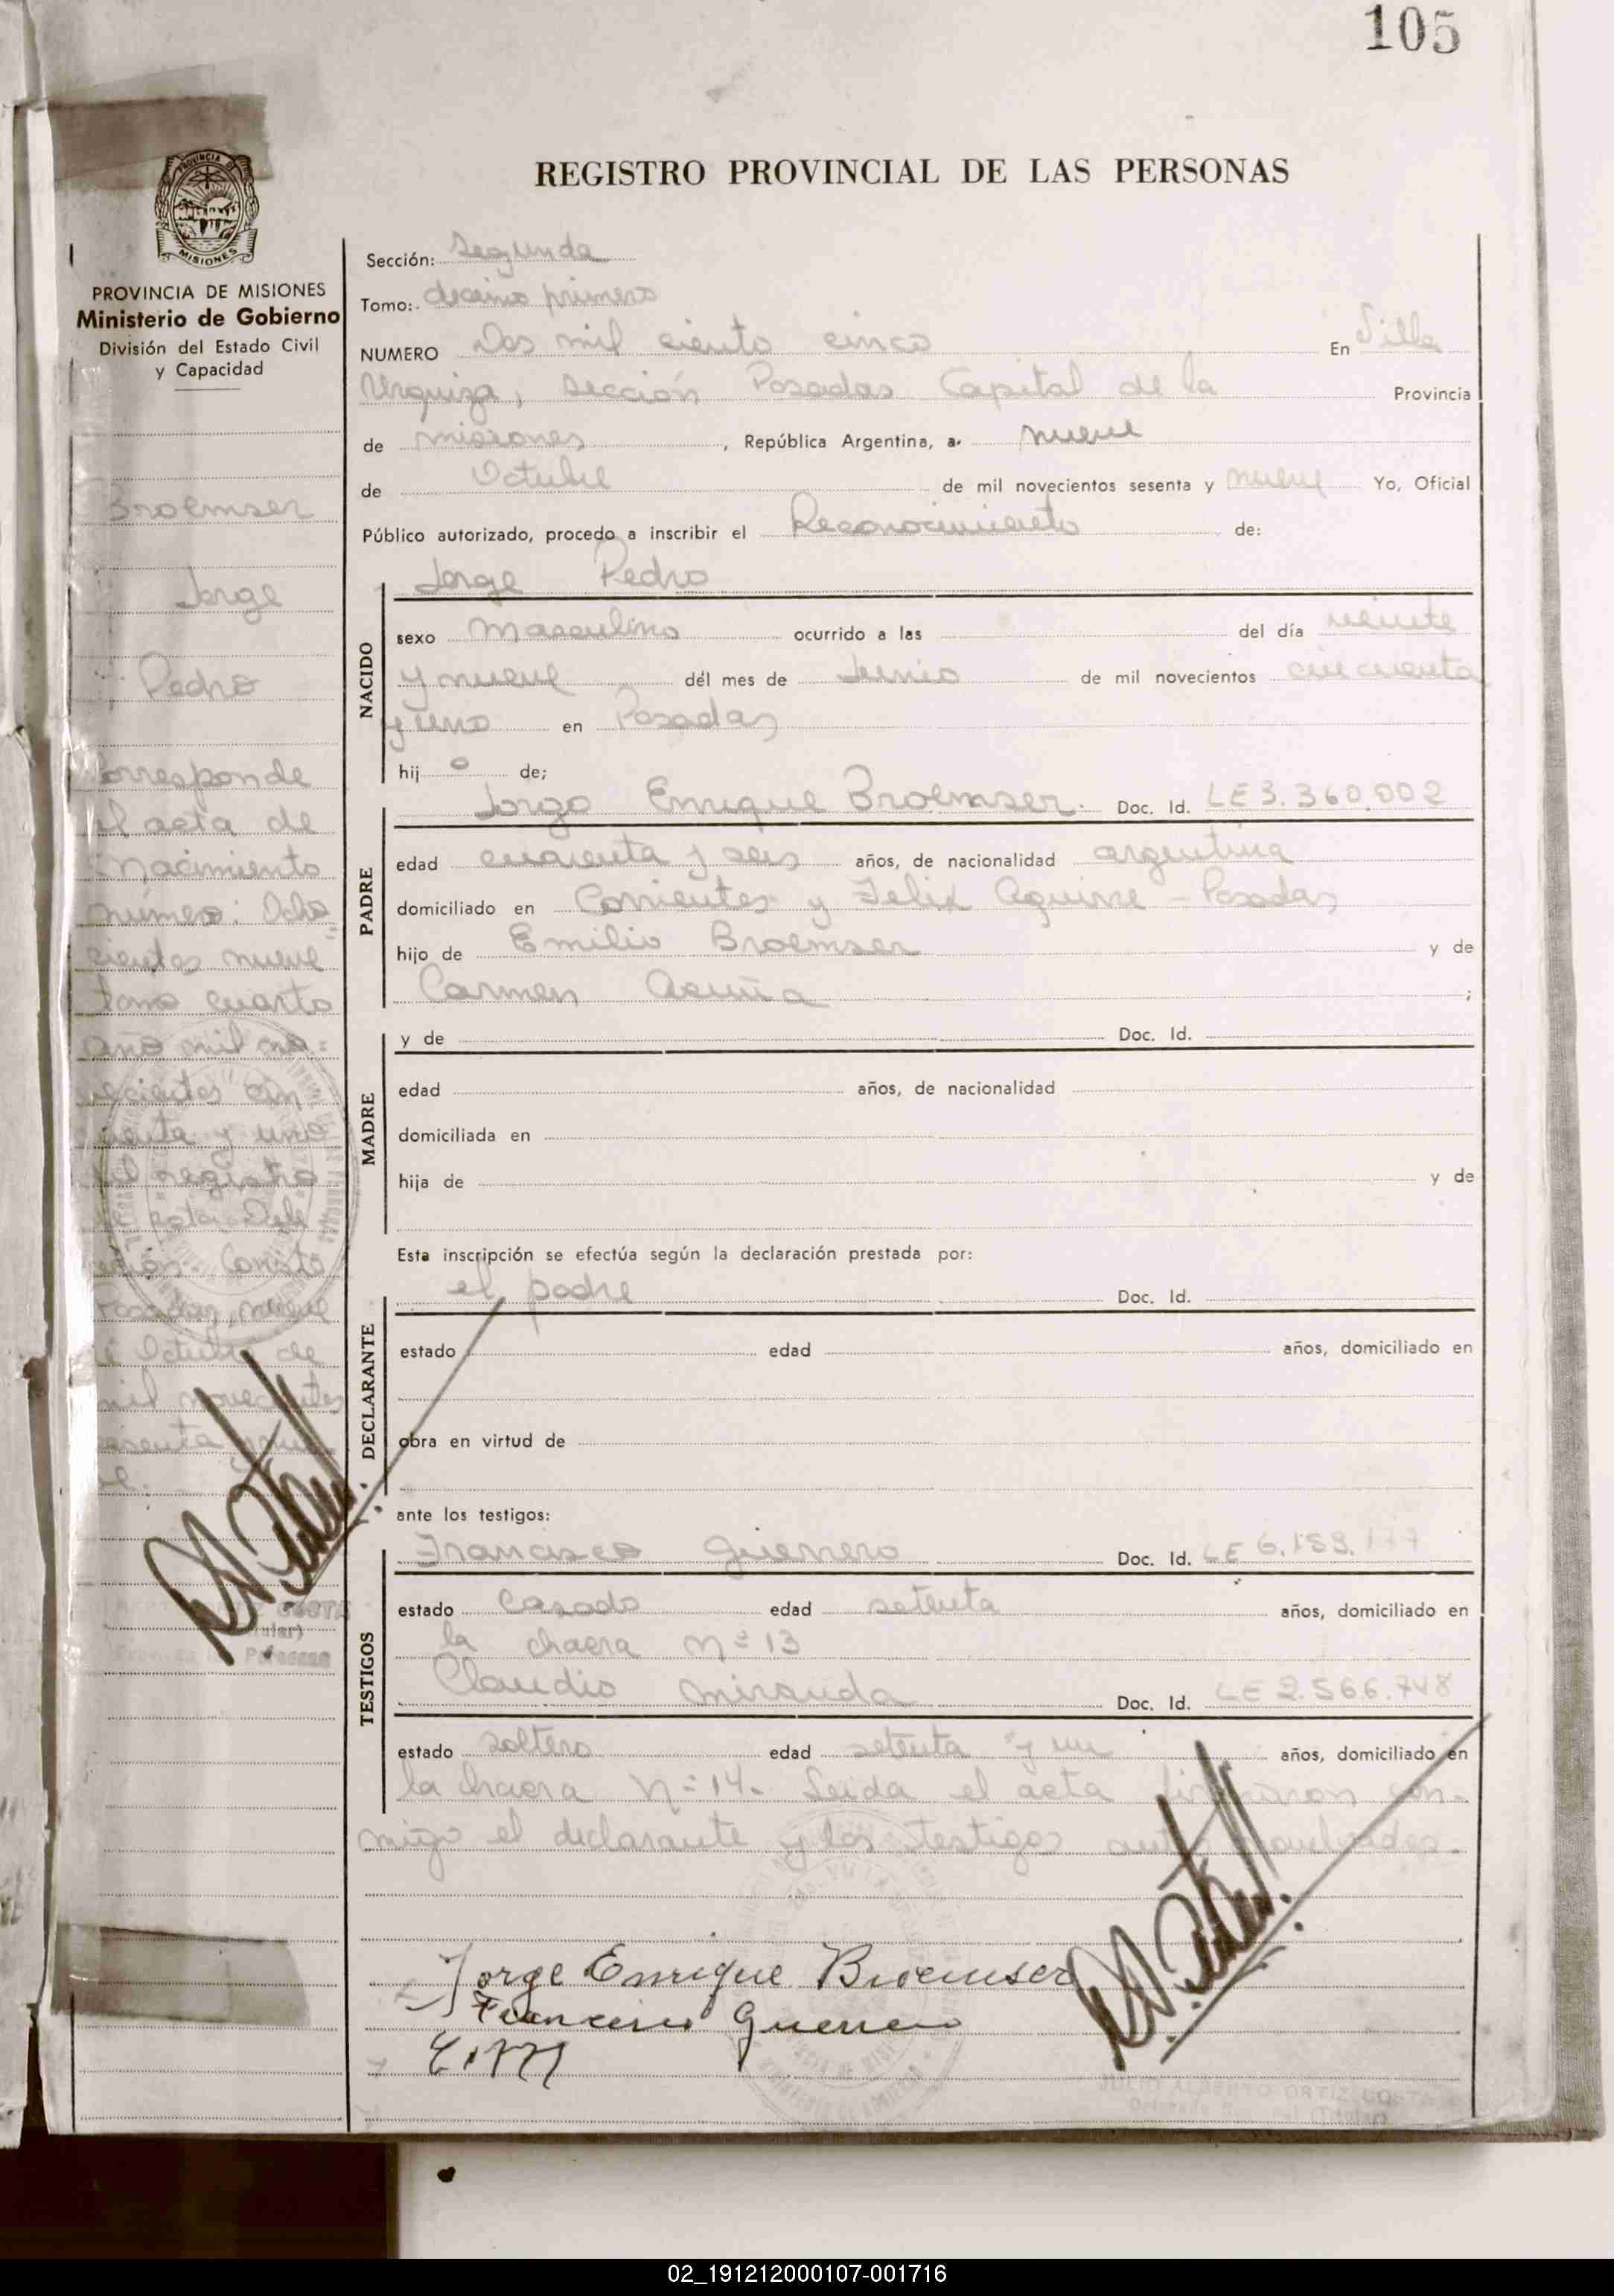 105
REGISTRO PROVINCIAL DE LAS PERSONAS
MISIONES
PROVINCIA DE MISIONES
Ministerio de Gobierno
División del Estado Civil
y Capacidad
Broemser
Jorge
Pedro
Corresponde
el acta de
Nacimiento
número: Ocho
cientos nueve
tomo cuarto
año mil no=
vecientos cin
cuenta y uno
del registro
de esta Dele
Conste
Posadas, nueve
Octubre de
mil novecientos
sesenta y nue
ve.
Sección: Segunda
Tomo: decimo primero
NUMERO Dos mil ciento cinco En Villa
Urquiza, sección Posadas Capital de la Provincia
de misiones, República Argentina, a nueve
de Octubre de mil novecientos sesenta y nueve Yo, Oficial
Público autorizado, procedo a inscribir el Reconocimiento de:
Jorge Pedro
NACIDO
sexo Masculino ocurrido a las del día veinte
y nueve del mes de Junio de mil novecientos cincuenta
y uno en Posadas
hijo de;
PADRE
Jorge Enrique Broemser. Doc. Id. LE 3.360.002
edad cuarenta y seis años, de nacionalidad argentina
domiciliado en Corrientes y Felix Aguirre - Posadas
hijo de Emilio Broemser y de
Carmen Acuña ;
MADRE
y de Doc. Id.
edad años, de nacionalidad
domiciliada en
hija de y de
Esta inscripción se efectúa según la declaración prestada por:
DECLARANTE
el padre Doc. Id.
estado edad años, domiciliado en
obra en virtud de
ante los testigos:
TESTIGOS
Francisco Guerrero Doc. Id. LE 6.153.177
estado Casado edad setenta años, domiciliado en
la chacra nº 13
Claudio miranda Doc. Id. LE 2.566.748
estado soltero edad setenta y un años, domiciliado en
la chacra nº 14. Leida el acta firmaron con-
migo el declarante y los testigos
Jorge Enrique Broemser
Francisco Guerrero
C.M
JULIO ALBERTO ORTIZ COSTA
02_191212000107-001716